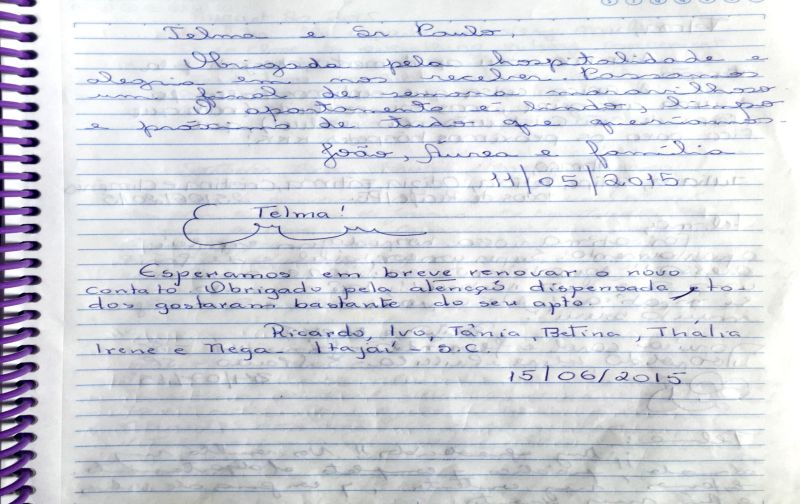 Telma e Sr Paulo,
Obrigada pela hospitalidade e
alegria em nos receber. Passamos
um final de semana maravilhoso.
O apartamento é lindo, limpo
e próximo de tudo que queríamos.
João, Áurea e família
11/05/2015
Telma!
Esperamos em breve renovar o novo
contato Obrigado pela atenção dispensada, to-
dos gostaram bastante do seu apto.
Ricardo, Ivo, Tânia, Betina, Thália
Irene e Nega - Itajaí - S.C.
15/06/2015